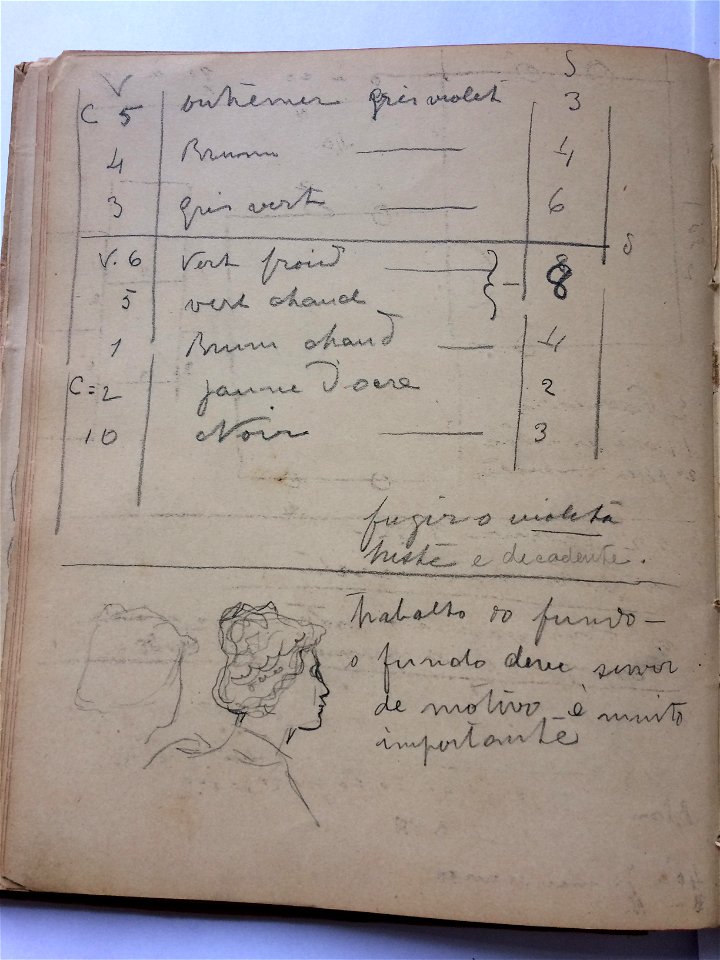 V S
C 5 outremer gris violet 3
4 Brun — 4
3 gris vert — 6
V. 6 Vert froid — 8
5 vert chaud
1 Brun chaud — 4
C = 2 jaune d'ocre 2
10 Noir — 3
fugir o violeta
triste e decadente.
trabalho do fundo —
o fundo deve servir
de motivo é muito
importante